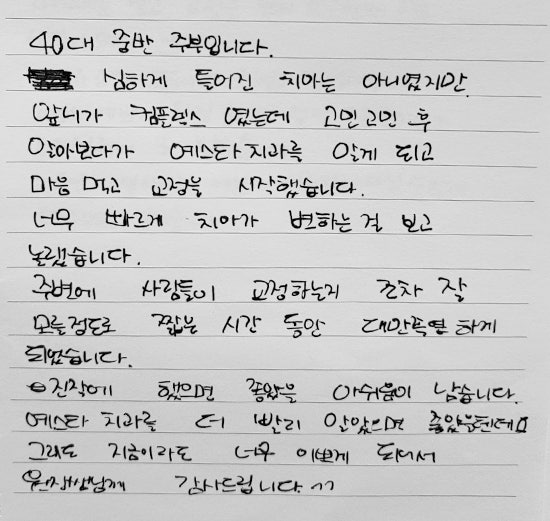 40대 중반 주부입니다.
심하게 틀어진 치아는 아니였지만
앞니가 컴플렉스 였는데 고민고민 후
알아보다가 예스타치과를 알게 되고
마음 먹고 교정을 시작했습니다.
너무 빠르게 치아가 변하는 걸 보고
놀랬습니다.
주변에 사람들이 교정하는지 조차 잘
모를정도로 짧은 시간 동안 대만족열 하게
되었습니다.
진작에 했으면 좋았을 아쉬움이 남습니다.
예스타 치과를 더 빨리 알았으면 좋았을텐데요
그래도 지금이라도 너무 이쁘게 되어서
원장쌤님께 감사드립니다. ^^